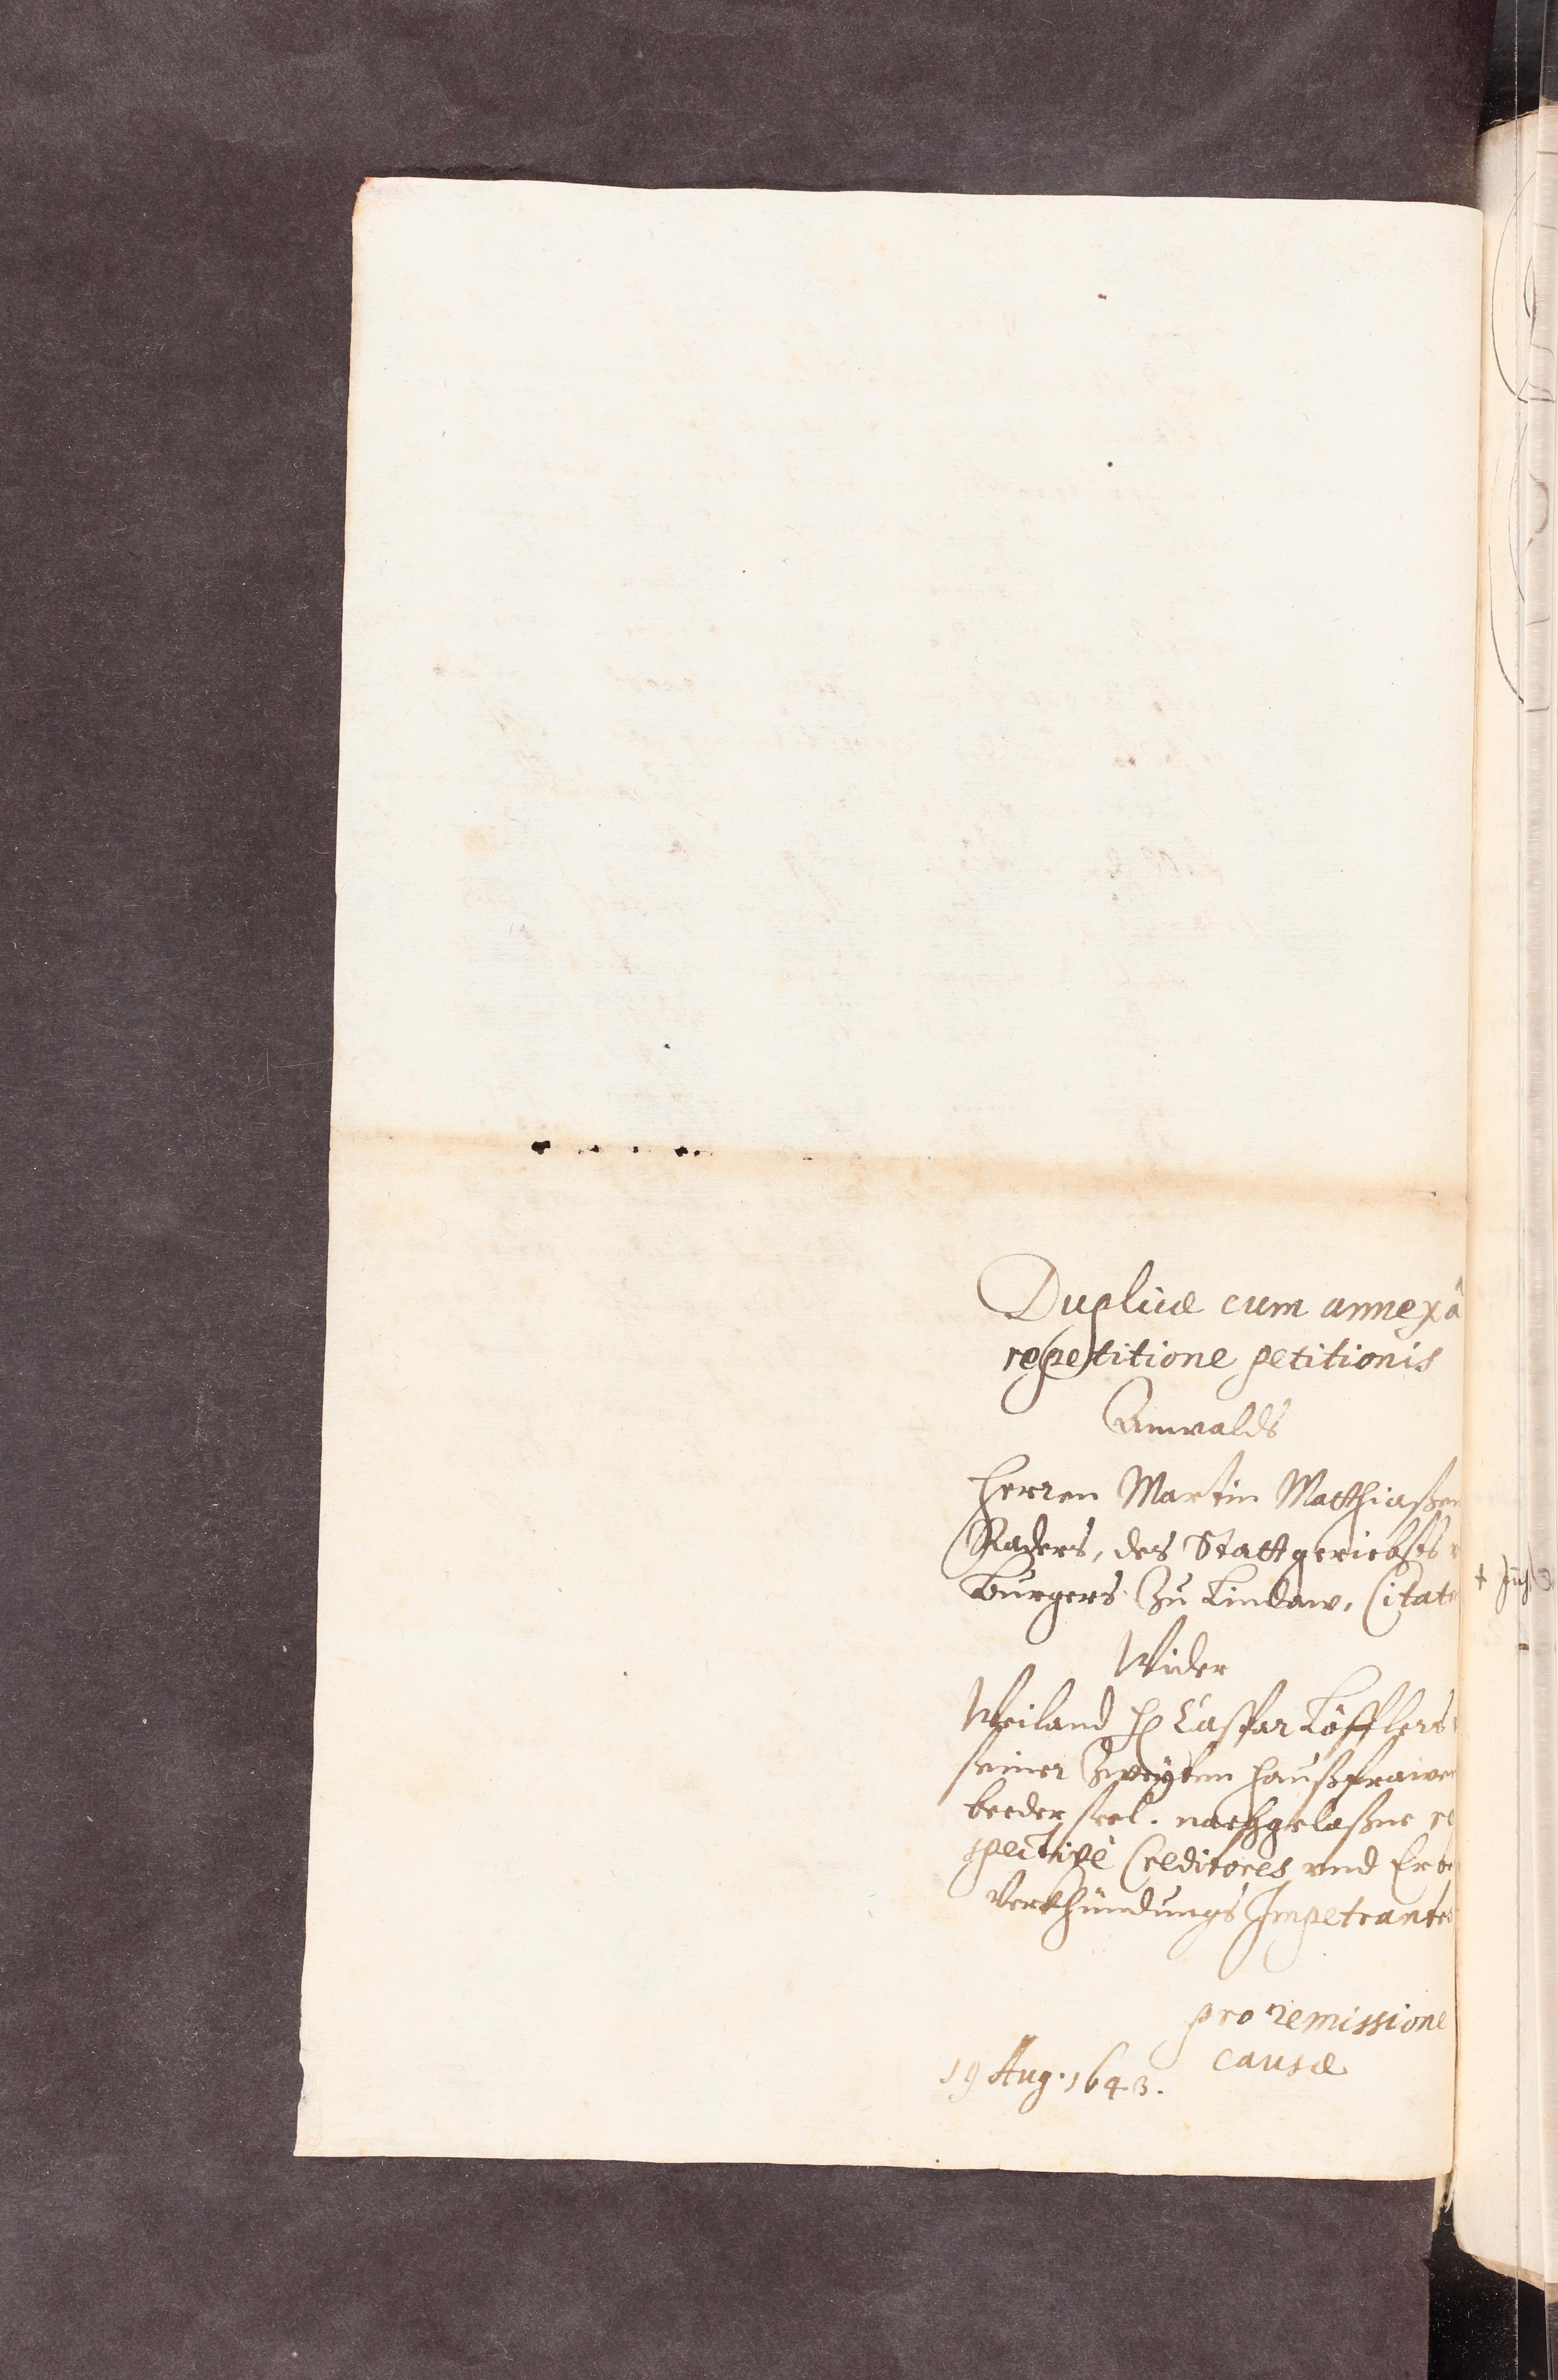 Duplicæ cum annexâ
repetitione petitionis
Anwalds
Herren Martin Matthiaßen
Raders, des Stattgerichts
Burgers zu Lindaw, Citat
Wider
Weiland H Caspar Löfflers
seiner Zweyten haußfrawen
beeder seel. nachgelaßne re
spectivè Creditores vnd Erbe
Verkhündungs Impetranten
pro remissione
causæ
19 Aug. 1643.